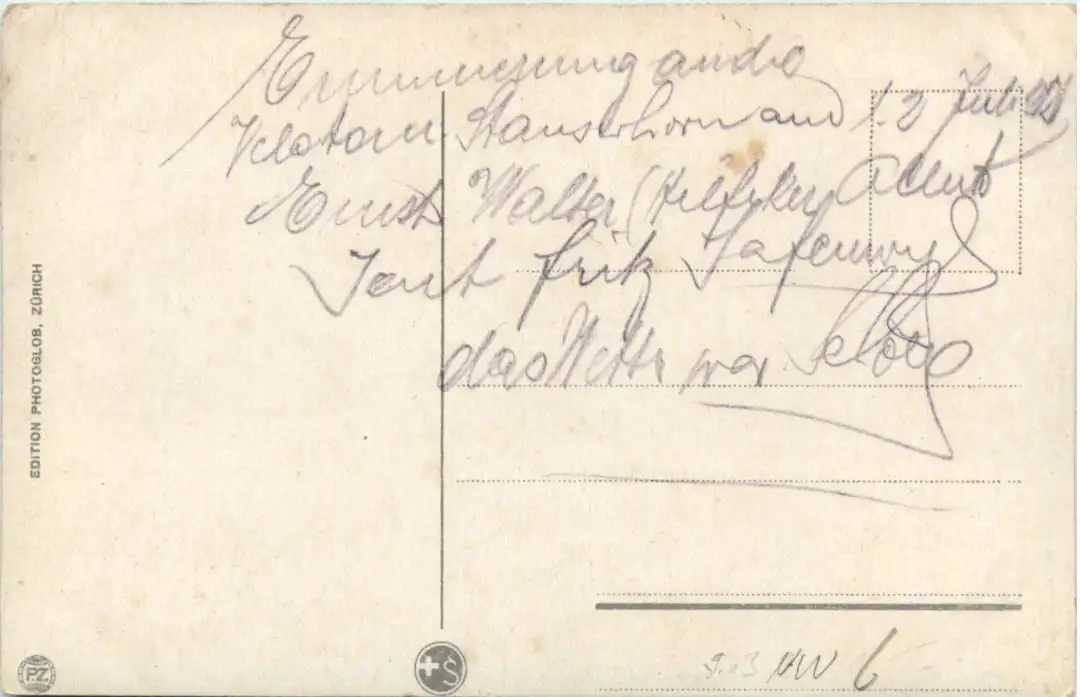 Erinnerung an die
Velotour Stanserhorn am 1. 3 Juli
Ernst Walter Hilfiker
Jent Fritz Safenwyl
das Wetter war schön
EDITION PHOTOGLOB, ZÜRICH
P.Z.
S
NW 6